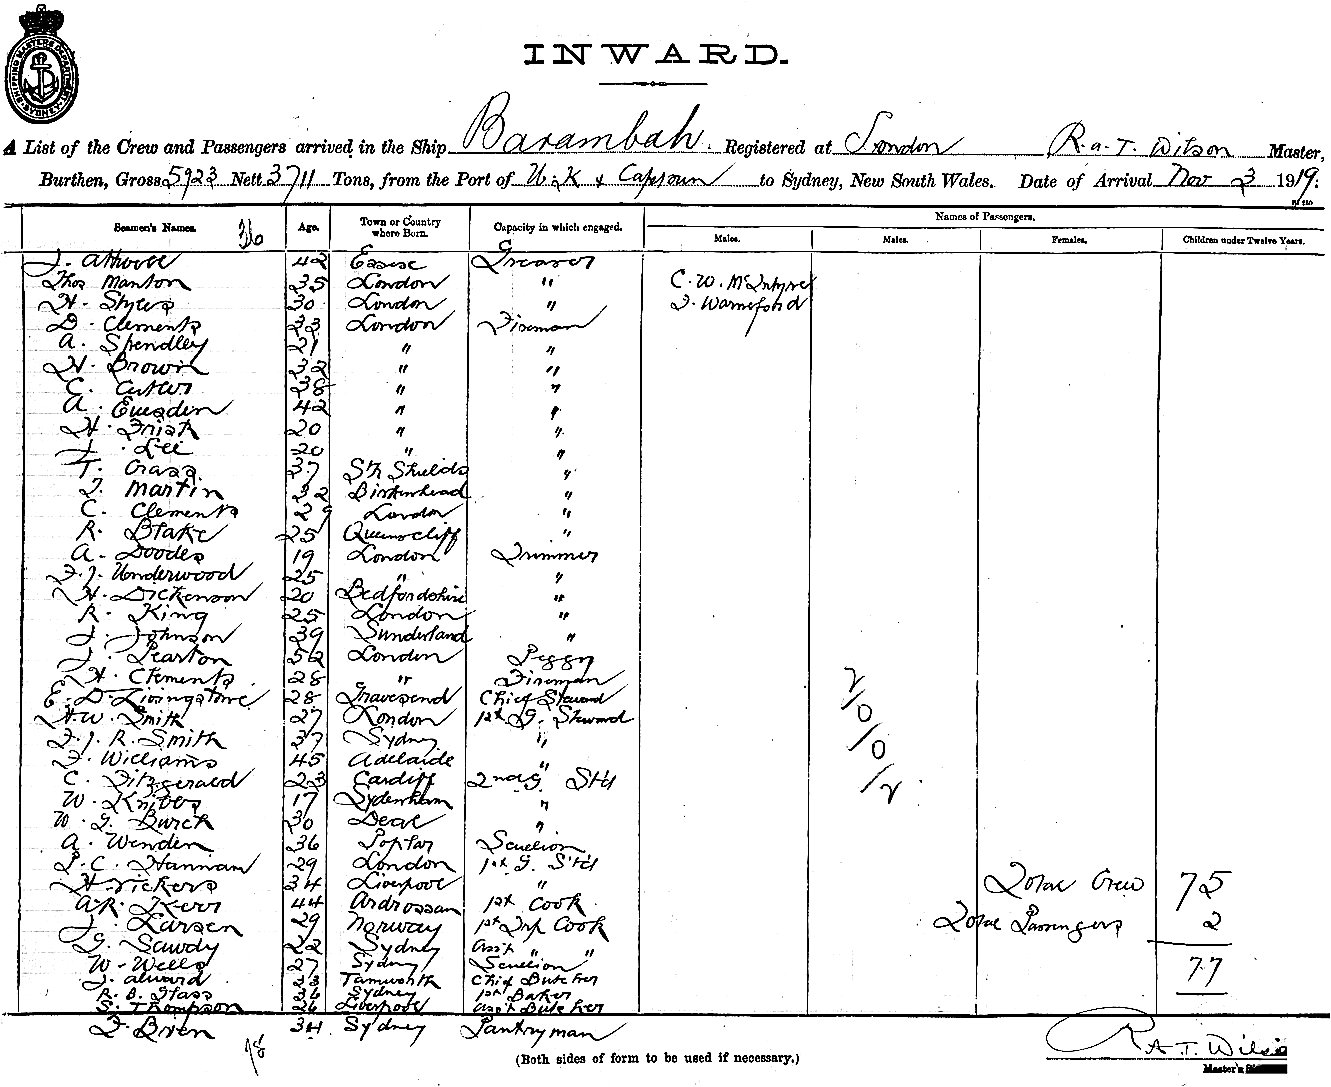 SHIPPING MASTER'S DEPARTMENT SYDNEY
INWARD.
A List of the Crew and Passengers arrived in the Ship Barambah. Registered at London R.A.T. Wilson Master,
Burthen, Gross 5923 Nett 3711 Tons, from the Port of U.K & Capetown to Sydney, New South Wales. Date of Arrival Nov 3 1919.
Names of Passengers.
Seamen's Names. Age. Town or Country where Born. Capacity in which engaged. Males. Males. Females. Children under Twelve Years.
J. Attwell 42 Essex Greaser
Thos Manton 35 London " C. W. McIntyre
H. Styles 30 London " F. Warneford
D. Clements 33 London Fireman
A. Spendley 21 " "
H. Brown 32 " "
C. 38 " "
A. Euesden 42 " "
H. Frisk 20 " "
J. Lee 20 " "
T. Grass 37 Sth Shields "
F. Martin 32 Birkenhead "
C. Clements 29 London "
R. Blake 25 Queenscliff "
A. 19 London Trimmer
F. J. Underwood 25 " "
H. Dickenson 20 Bedfordshire "
R. King 25 London "
J. Johnson 39 Sunderland "
J. Pearton 52 London Peggy
H. Clements 28 " Fireman
E. D. Livingstone 28 Gravesend Chief Steward
H. W. Smith 27 London 1st G. Steward
F. J. R. Smith 37 Sydney "
F. Williams 45 Adelaide "
C. Fitzgerald 23 Cardiff 2nd G Std
W. Knibbs 17 Sydenham "
W. G. Burch 30 Deal "
A. Wenden 36 Poplar Scullion
P. C. Hannan 29 London 1st G. Std
H. Vickers 34 Liverpool " Total Crew 75
A. R. Kerr 44 Ardrossan 1st Cook
J. Larsen 29 Norway 1st Trp Cook Total Passengers 2
G. Sawdy 22 Sydney Asst " "
W. Wells 27 Sydney Scullion 77
J. Alward 33 Tamworth Chief Butcher
R. B. Glass 36 Sydney 1st Baker
S. Thompson 26 Liverpool Asst Butcher
F. Brien 34 Sydney Pantryman
2/0/0/2
R A T. Wilson
(Both sides of form to be used if necessary.)
Master's